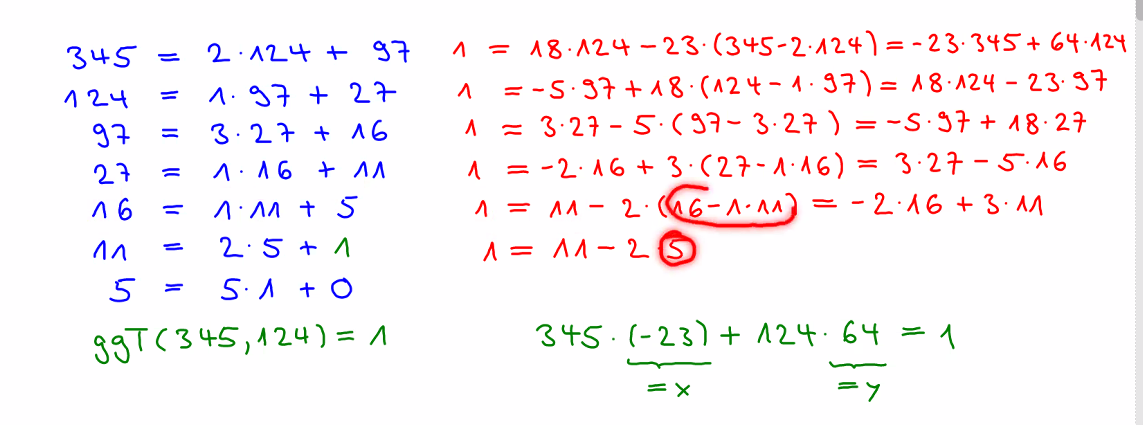 345 = 2·124 + 97
124 = 1·97 + 27
97 = 3·27 + 16
27 = 1·16 + 11
16 = 1·11 + 5
11 = 2·5 + 1
5 = 5·1 + 0
ggT(345,124) = 1
1 = 18·124 - 23·(345-2·124) = -23·345 + 64·124
1 = -5·97 + 18·(124 - 1·97) = 18·124 - 23·97
1 = 3·27 - 5·(97 - 3·27) = -5·97 + 18·27
1 = -2·16 + 3·(27 - 1·16) = 3·27 - 5·16
1 = 11 - 2·(16 - 1·11) = -2·16 + 3·11
1 = 11 - 2·5
345·(-23) + 124·64 = 1
=x =y